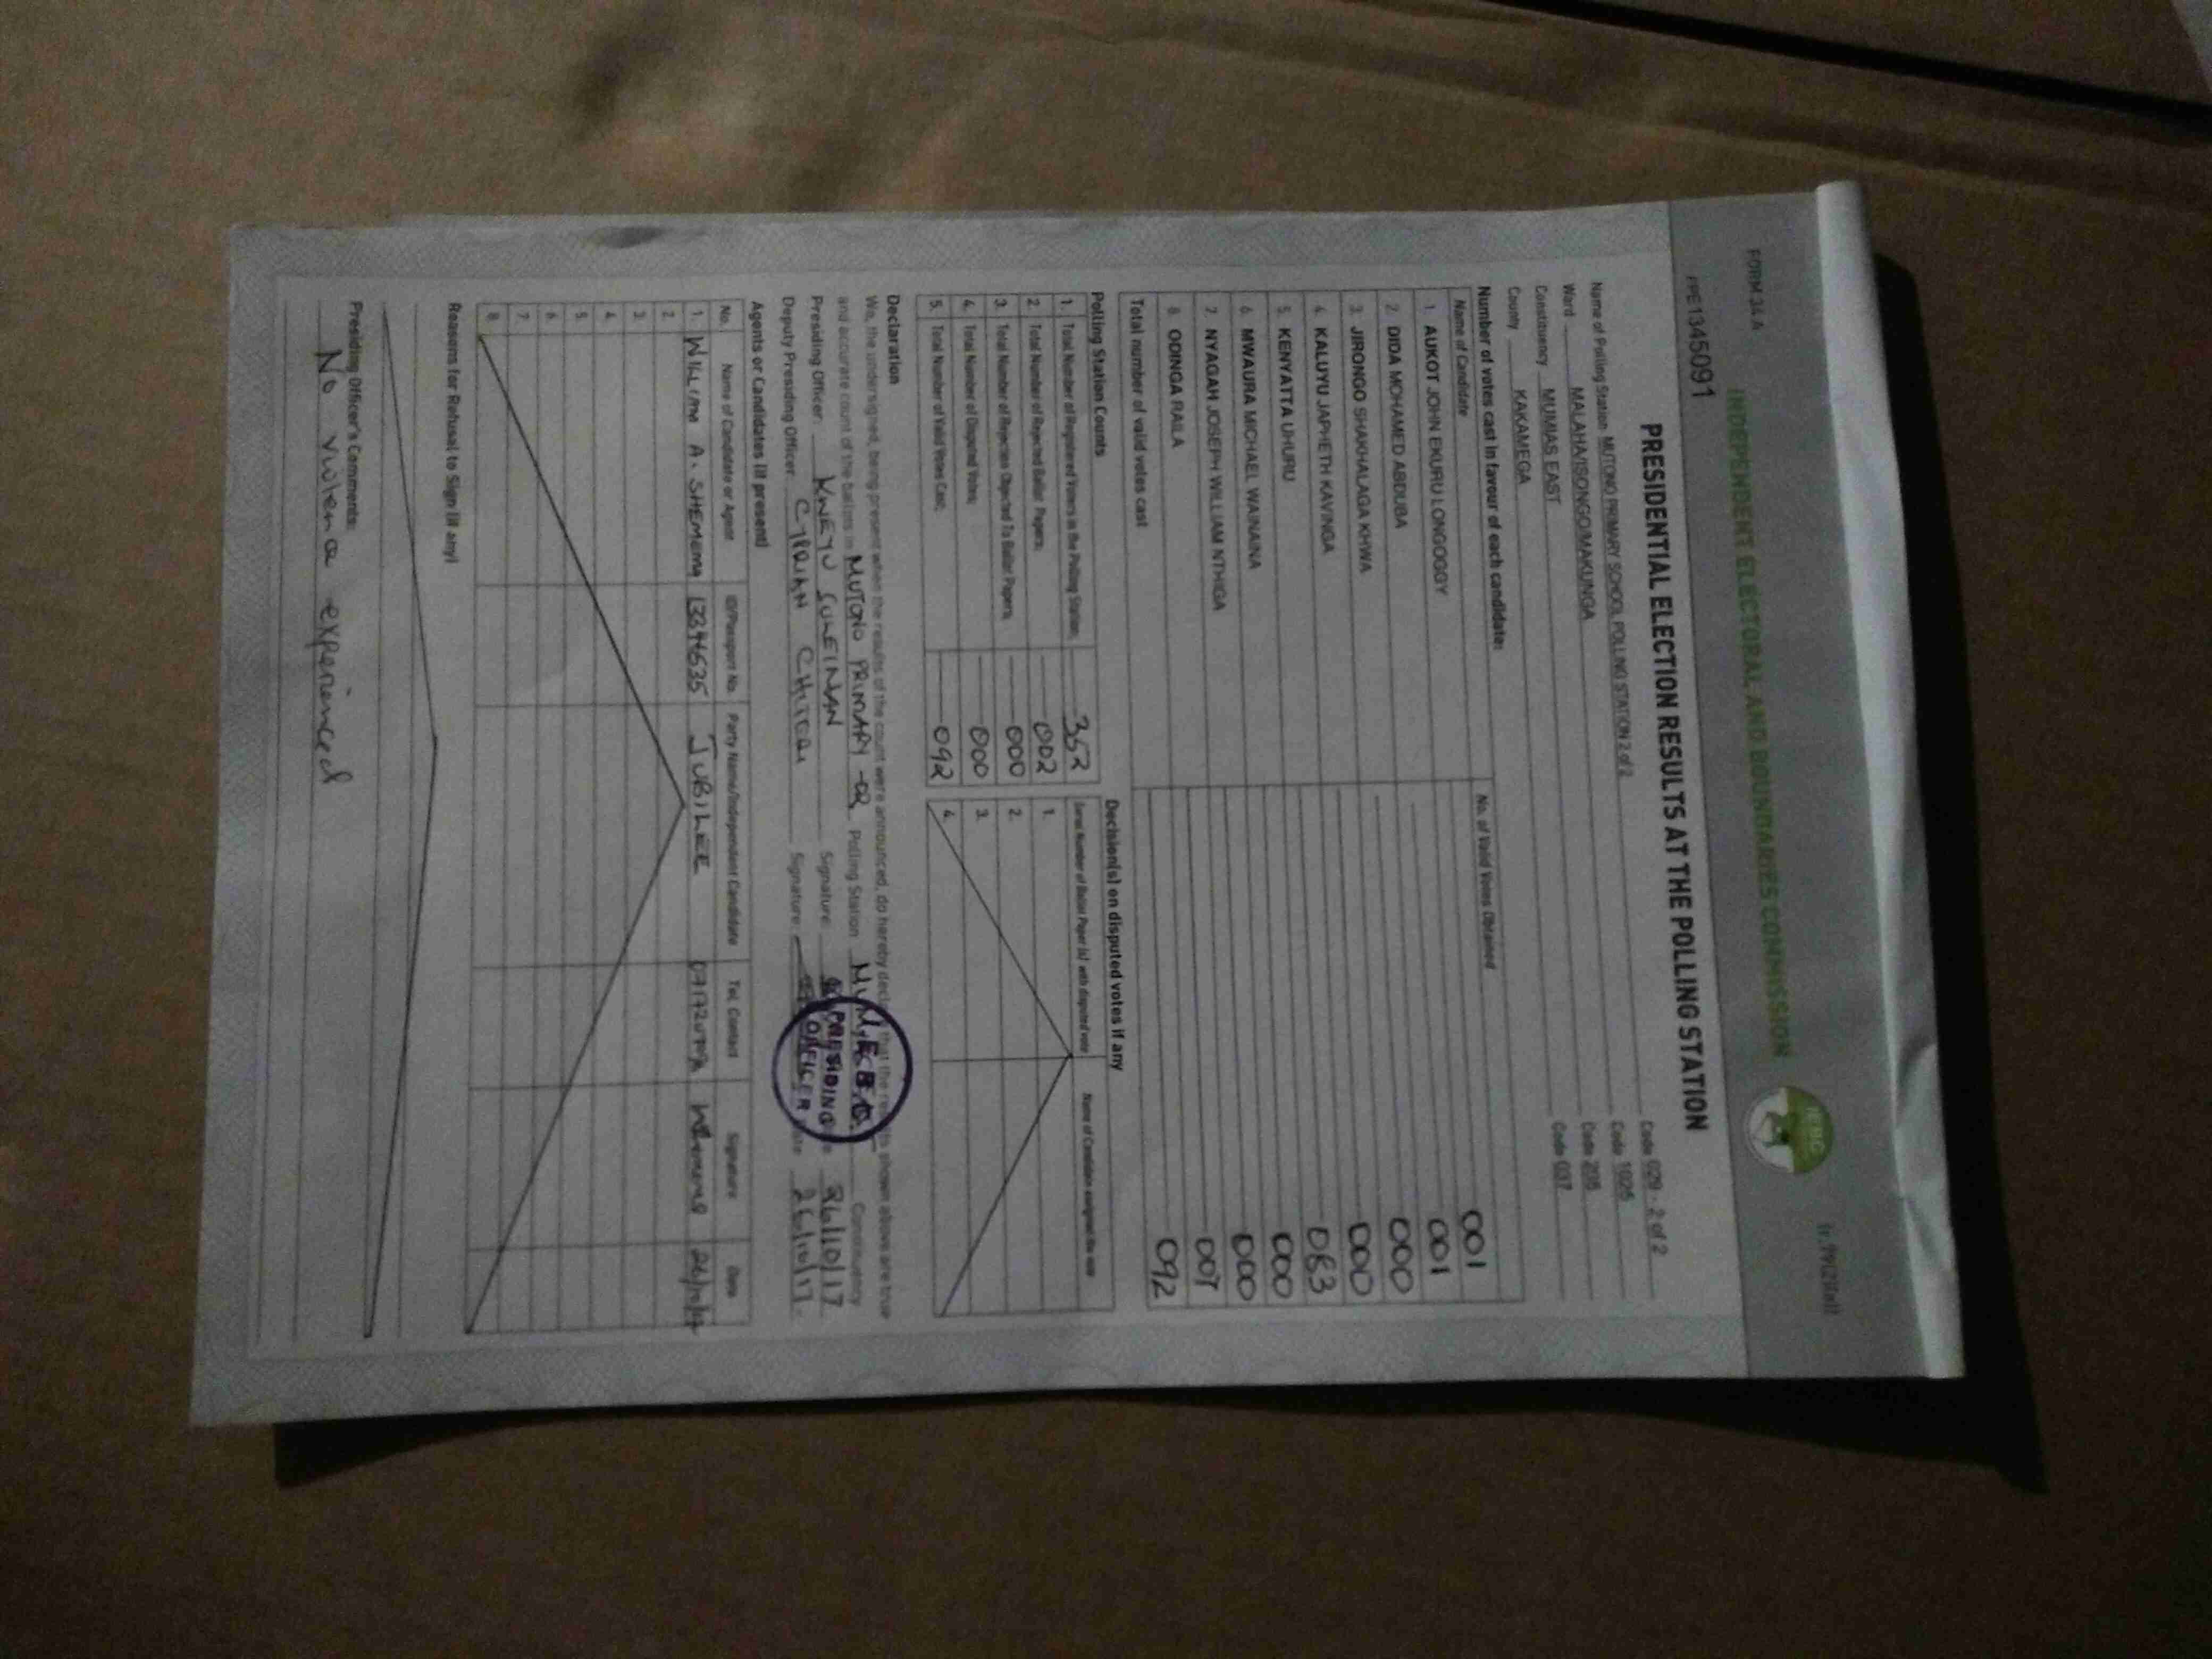 FORM 34 A
INDEPENDENT ELECTORAL AND BOUNDARIES COMMISSION
IEBC
PPE1345091
PRESIDENTIAL ELECTION RESULTS AT THE POLLING STATION
Name of Polling Station MUTONO PRIMARY SCHOOL POLLING STATION 2 of 2 Code 029 - 2 of 2
Ward MALAHA/ISONGO/MAKUNGA Code 1025
Constituency MUMIAS EAST Code 205
County KAKAMEGA Code 037
Number of votes cast in favour of each candidate:
Name of Candidate No. of Valid Votes Obtained
1. AUKOT JOHN EKURU LONGOGGY 001
2. DIDA MOHAMED ABDUBA 001
3. JIRONGO SHAKHALAGA KHWA 000
4. KALUYU JAPHETH KAVINGA 000
5. KENYATTA UHURU 083
6. MWAURA MICHAEL WAINAINA 000
7. NYAGAH JOSEPH WILLIAM NTHIGA 000
8. ODINGA RAILA 007
Total number of valid votes cast 092
Polling Station Counts
1. Total Number of Registered Voters in the Polling Station; 352
2. Total Number of Rejected Ballot Papers; 002
3. Total Number of Rejection Objected To Ballot Papers; 000
4. Total Number of Disputed Votes; 000
5. Total Number of Valid Votes Cast; 092
Decision(s) on disputed votes if any
Serial Number of Ballot Paper (s) with disputed vote Name of Candidate assigned the vote
1.
2.
3.
4.
Declaration
We, the undersigned, being present when the results of the count were announced, do hereby that the shown above are true
and accurate count of the ballots in MUTONO PRIMARY -02 Polling Station Constituency
Presiding Officer KWEYU SULEIMAN Signature 26/10/17
Deputy Presiding Officer CYPRIAN Signature 26/10/17.
I.E.B.C.
PRESIDING
OFFICER
Agents or Candidates (if present)
No. Name of Candidate or Agent ID/Passport No. Party Name/Independent Candidate Tel. Contact Signature Date
1. WILLIAM A. SHEMEMA 13344635 JUBILEE 26/10/17
2.
3.
4.
5.
6.
7.
8.
Reasons for Refusal to Sign (if any)
Presiding Officer's Comments:
No violence experienced